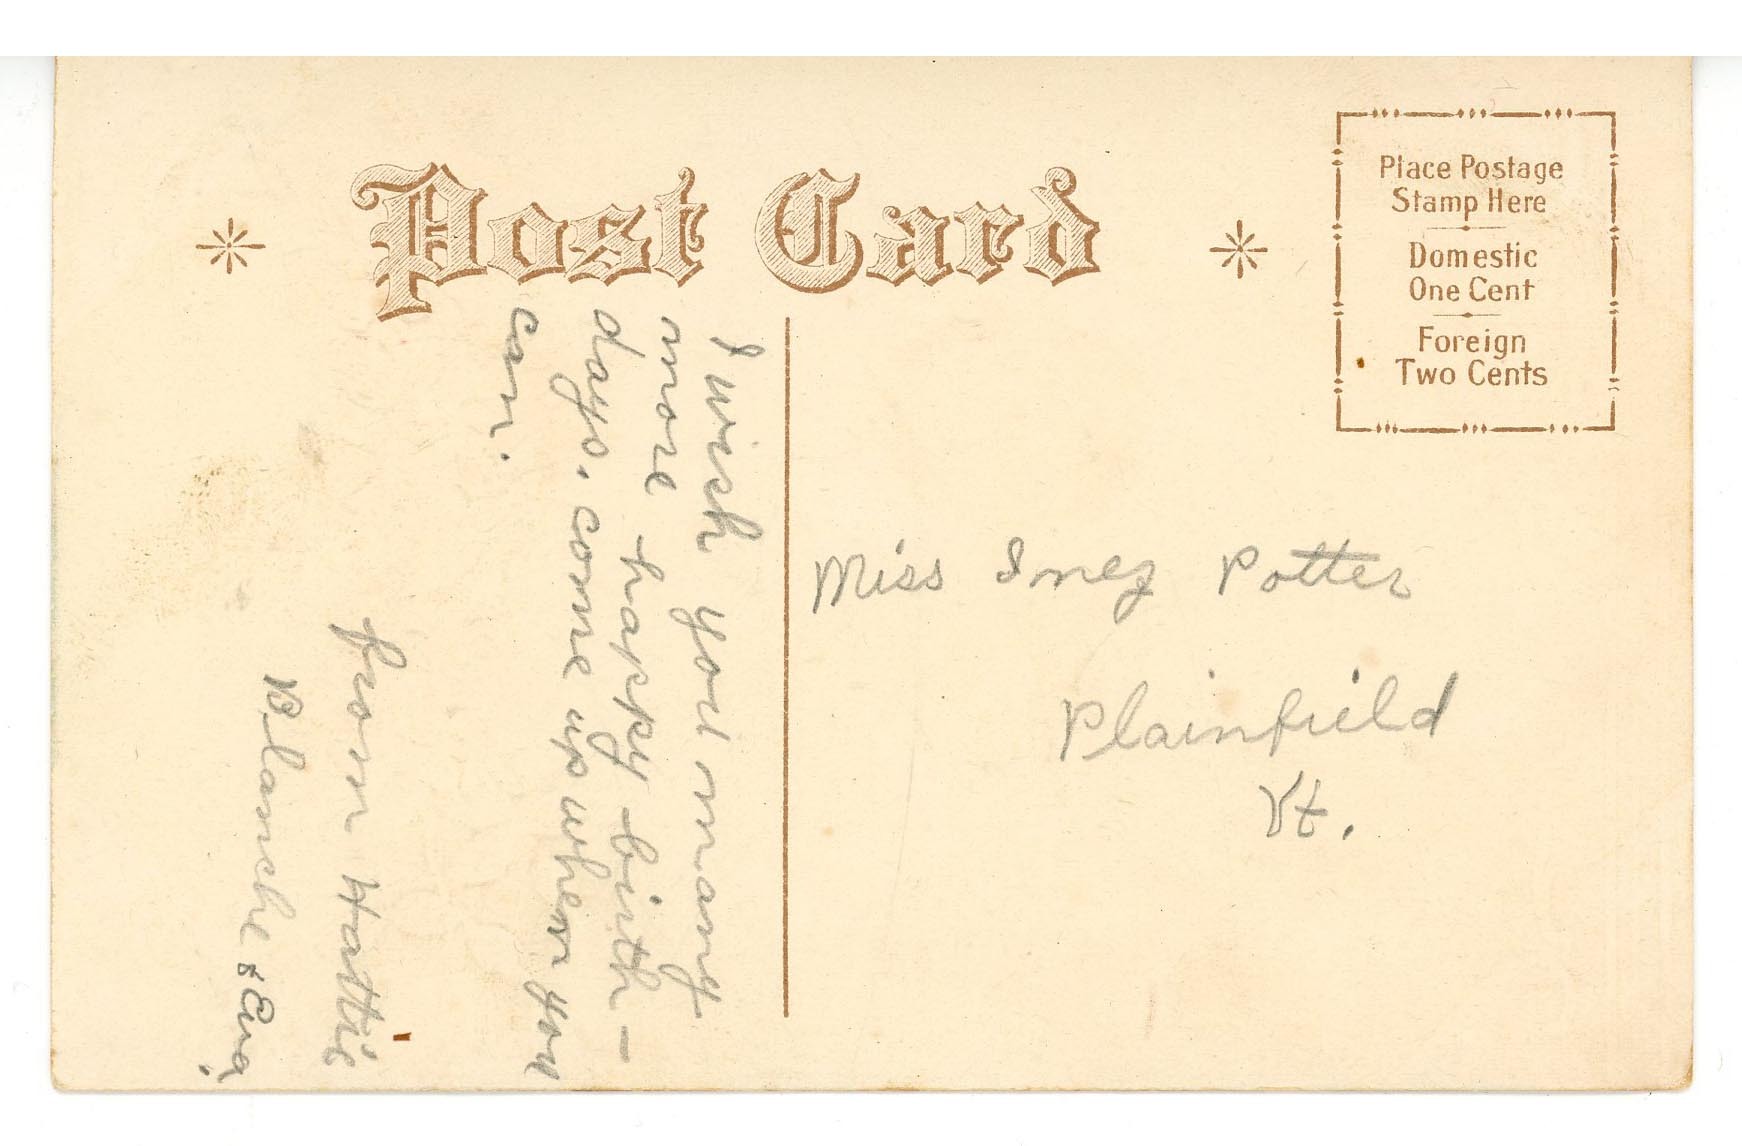 Post Card
Place Postage
Stamp Here
Domestic
One Cent
Foreign
Two Cents
I wish you many
more happy birth-
days. come up when you
can.
from Hattie
Blanche &
Miss Inez Potter
Plainfield
Vt.